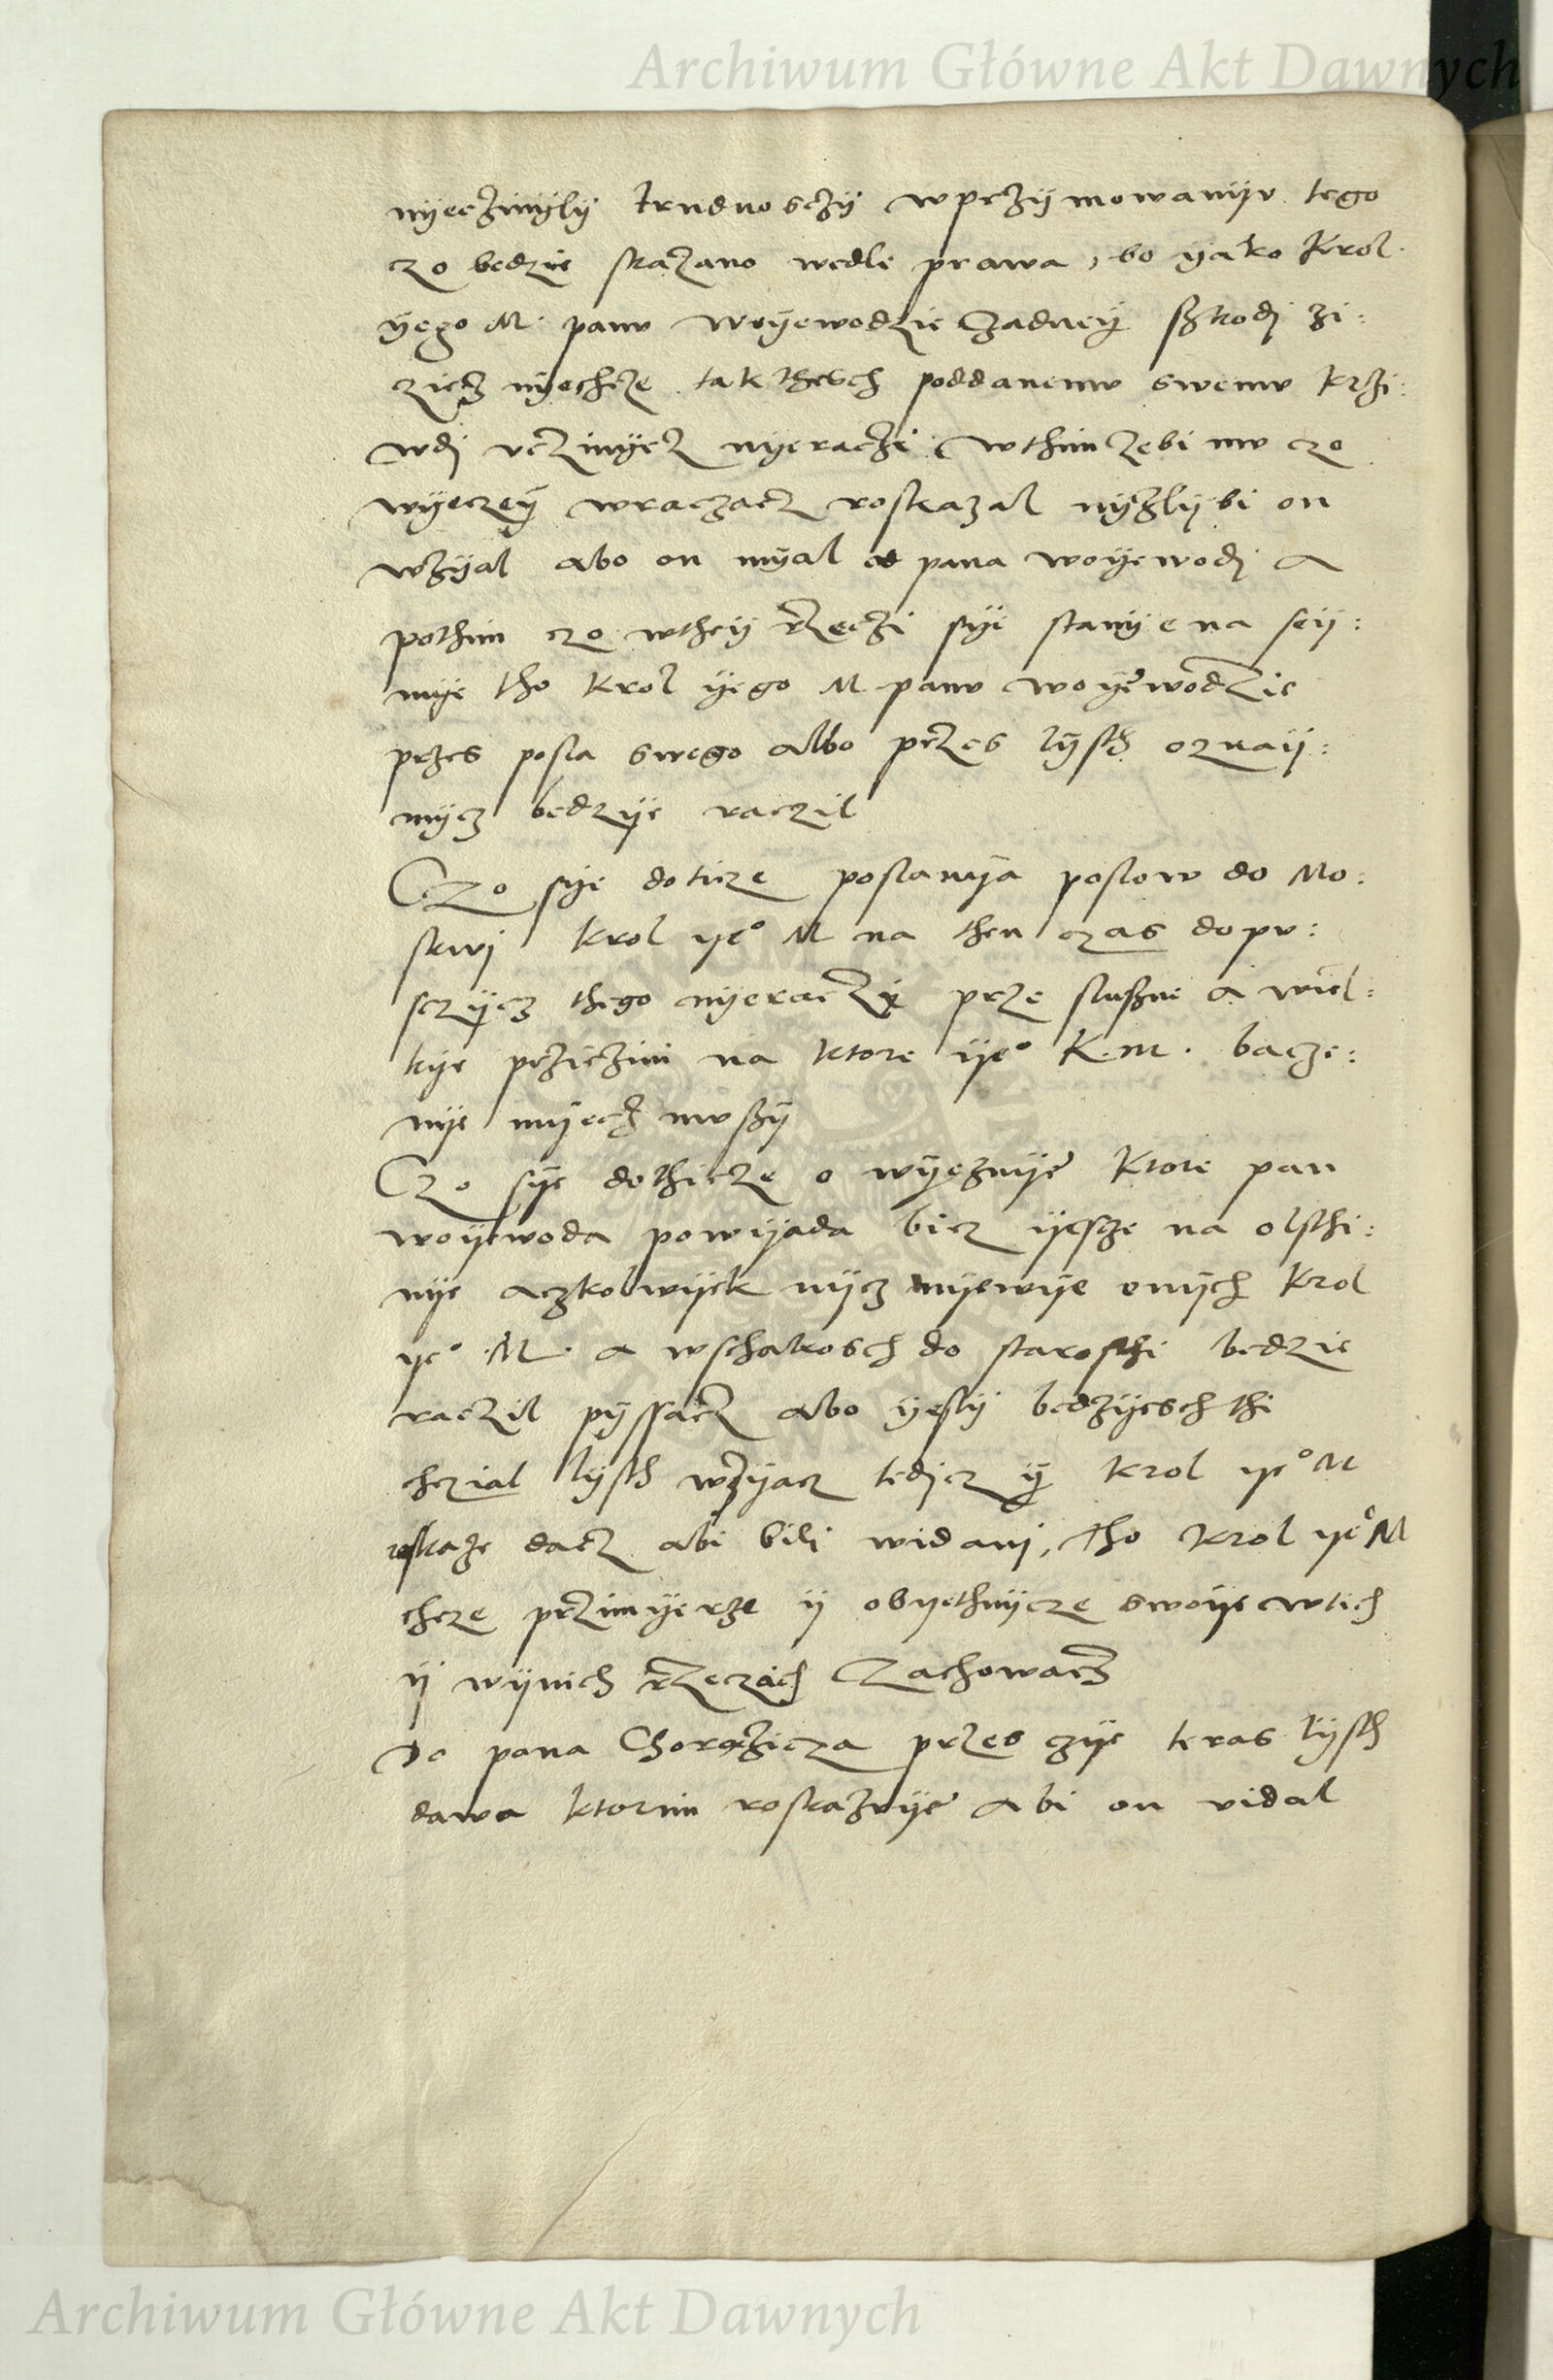 Archiwum Główne Akt Dawnych
nyeczinyly trudnosczy wprzymowanyv tego
czo bedzie skazano wedle prawa, bo yako Krol
yego M. panv woyewodzie Czadney szkodj zi:
czicz nyechcze tak thesch poddanemv swemv krzi:
wdj vczinycz nyeraczi wthim zebi mv czo
wyeczey wraczacz roskazal nyzlybi on
wzyal abo on myal od pana woyewodj a
pothim czo wthey rzeczi sye stanye na sey:
mye tho krol yego M panv woyewodzie
przes posla swego albo przes lysth oznay:
mycz bedzye raczil
Czo sye doticze poslanya poslow do Mo:
skwj krol ye° M na then czas dopv:
sczycz thego nyeraczy prze slusne a wiel:
kye prziczini na ktore ye° K. m. bacze:
nye myecz mvszy
Czo sye dothicze o wyeznye ktore pan
woyewoda powyada bicz yescze na olschi:
nye aczkolwyek nycz nyewye onych krol
ye° M. a wschakosch do starosthi bedzie
raczil pyssacz abo yesly bedzyesch thi
chczial lysth wzyacz tedjcz y krol ye° M
roskaze dacz abi bili widanj, tho krol ye° M
chcze przimyerze y obyethnycze swoye wtich
y wynich rzeczach Czachowacz
Do pana Chorazicza przes czye teras lysth
dawa ktorim roskazvye abi on vidal
Archiwum Główne Akt Dawnych